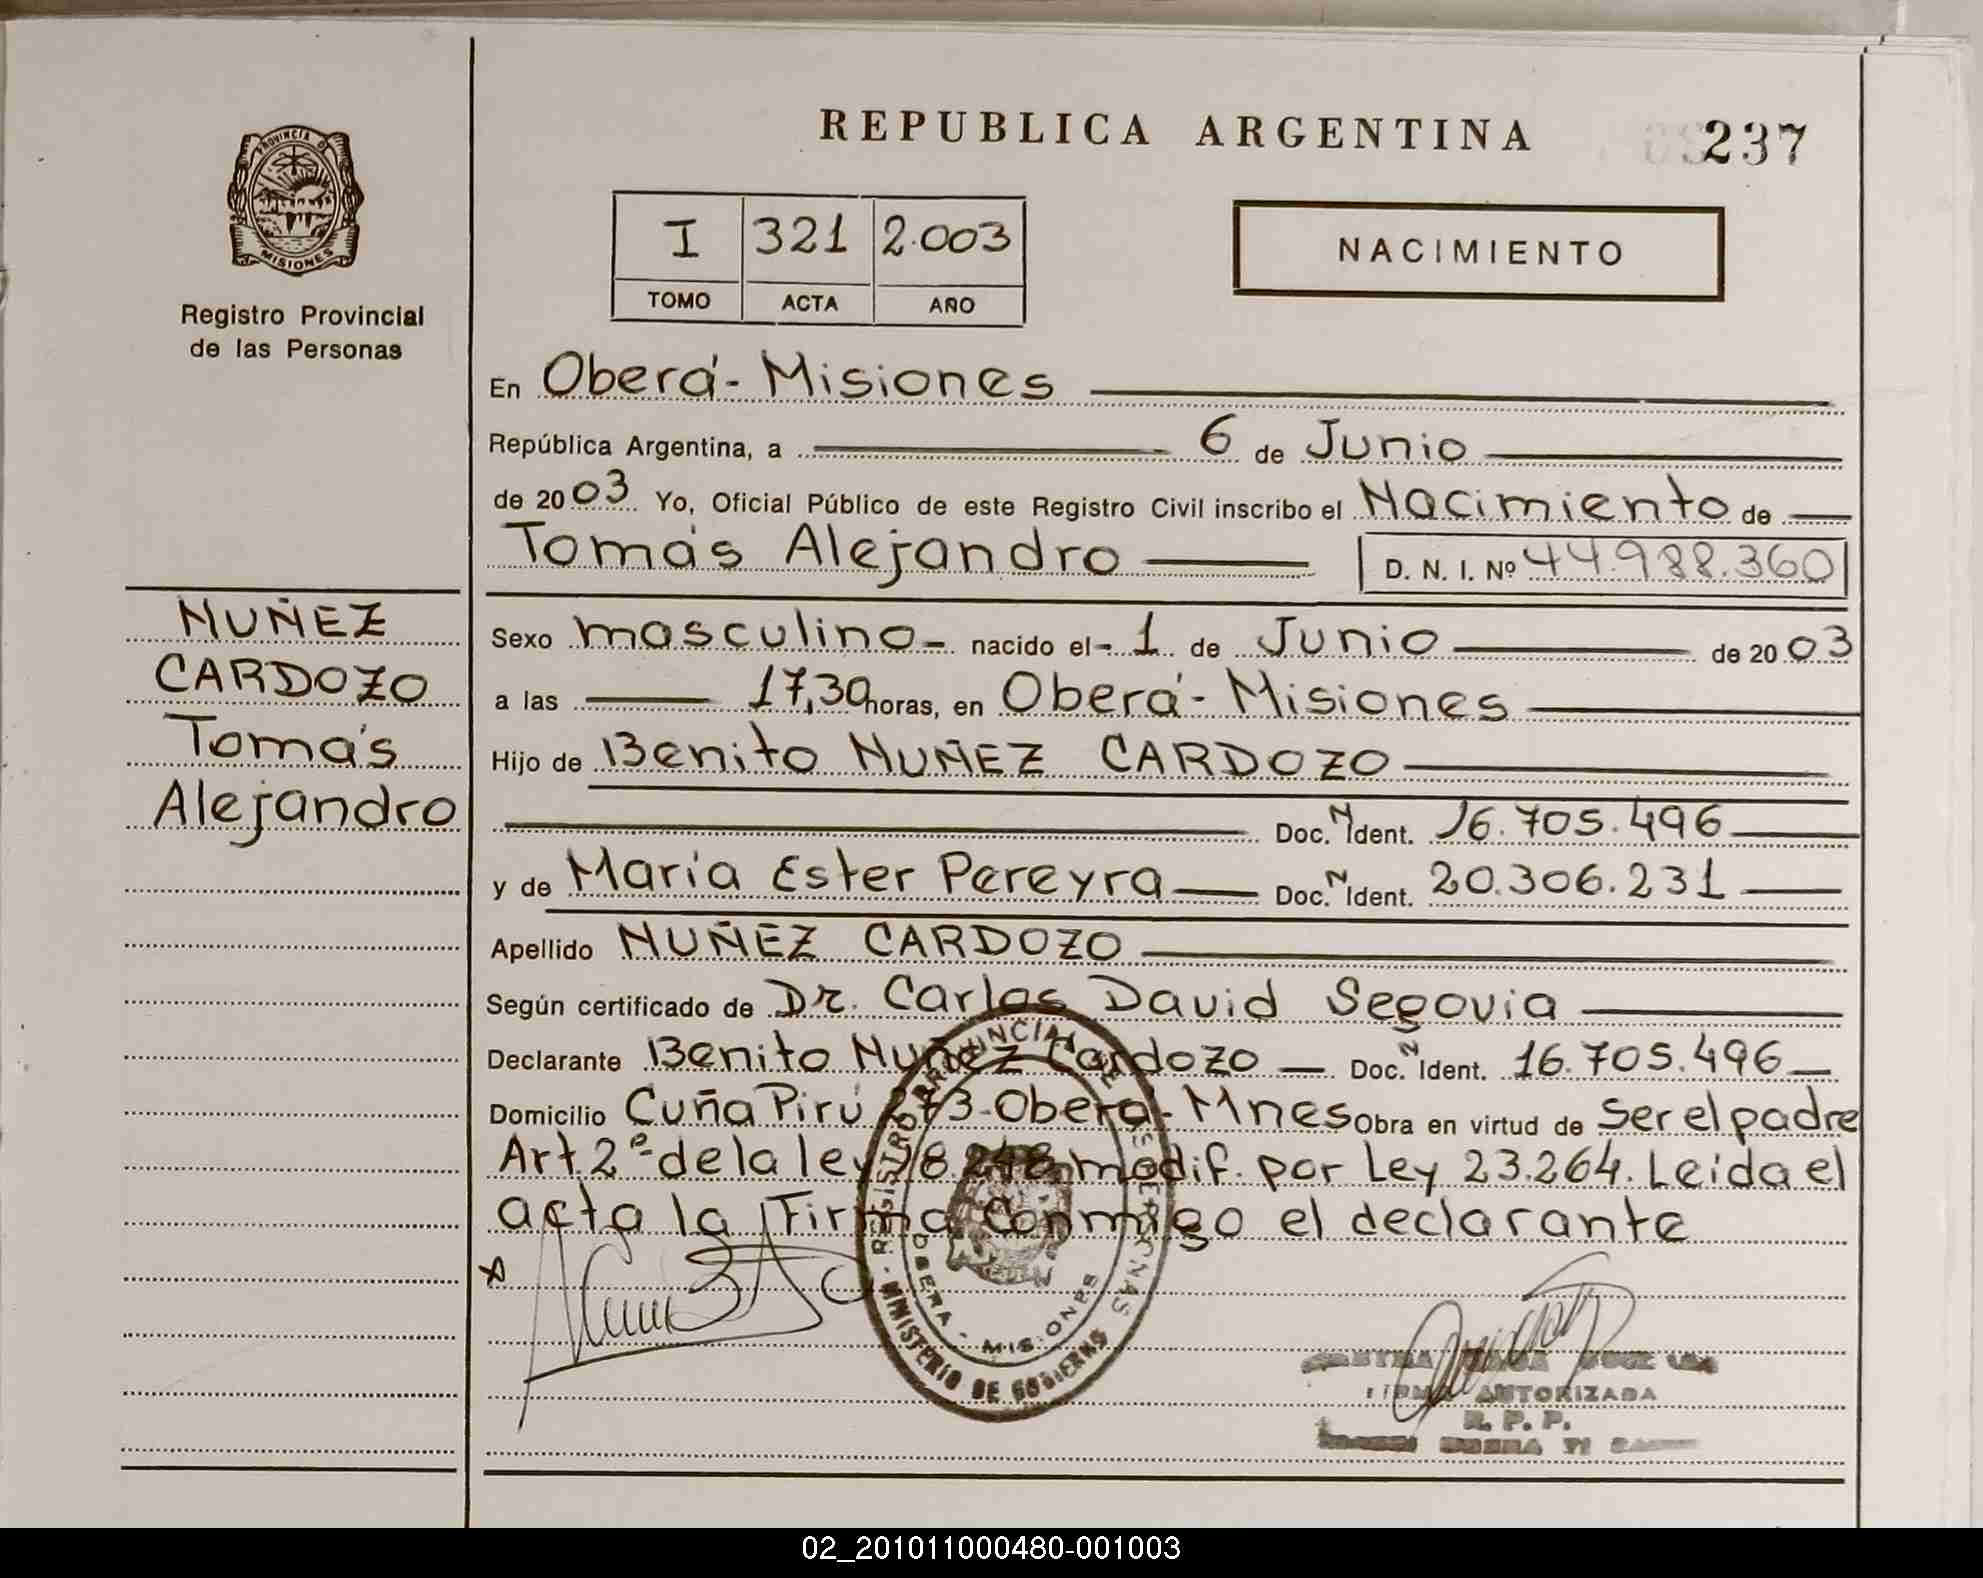 REPUBLICA ARGENTINA
237
PROVINCIA DE
MISIONES
Registro Provincial
de las Personas
I 321 2.003
TOMO ACTA AÑO
NACIMIENTO
NUÑEZ
CARDOZO
Tomás
Alejandro
En Oberá - Misiones
República Argentina, a 6 de Junio
de 2003 Yo, Oficial Público de este Registro Civil inscribo el Nacimiento de
Tomás Alejandro D. N. I. Nº 44.988.360
Sexo masculino - nacido el - 1 de Junio de 2003
a las 17,30 horas, en Oberá - Misiones
Hijo de Benito NUÑEZ CARDOZO
Doc. N Ident. 16.705.496
y de María Ester Pereyra Doc. N Ident. 20.306.231
Apellido NUÑEZ CARDOZO
Según certificado de Dr. Carlos David Segovia
Declarante Benito Nuñez Cardozo Doc. N Ident. 16.705.496
Domicilio Cuña Pirú 273 - Oberá - Mnes Obra en virtud de ser el padre
Art. 2º de la ley 18.248 modif. por Ley 23.264. Leida el
acta la firma conmigo el declarante
REGISTRO PROVINCIAL DE LAS PERSONAS
OBERA - MISIONES
MINISTERIO DE GOBIERNO
FIRMA AUTORIZADA
R. P. P.
02_201011000480-001003